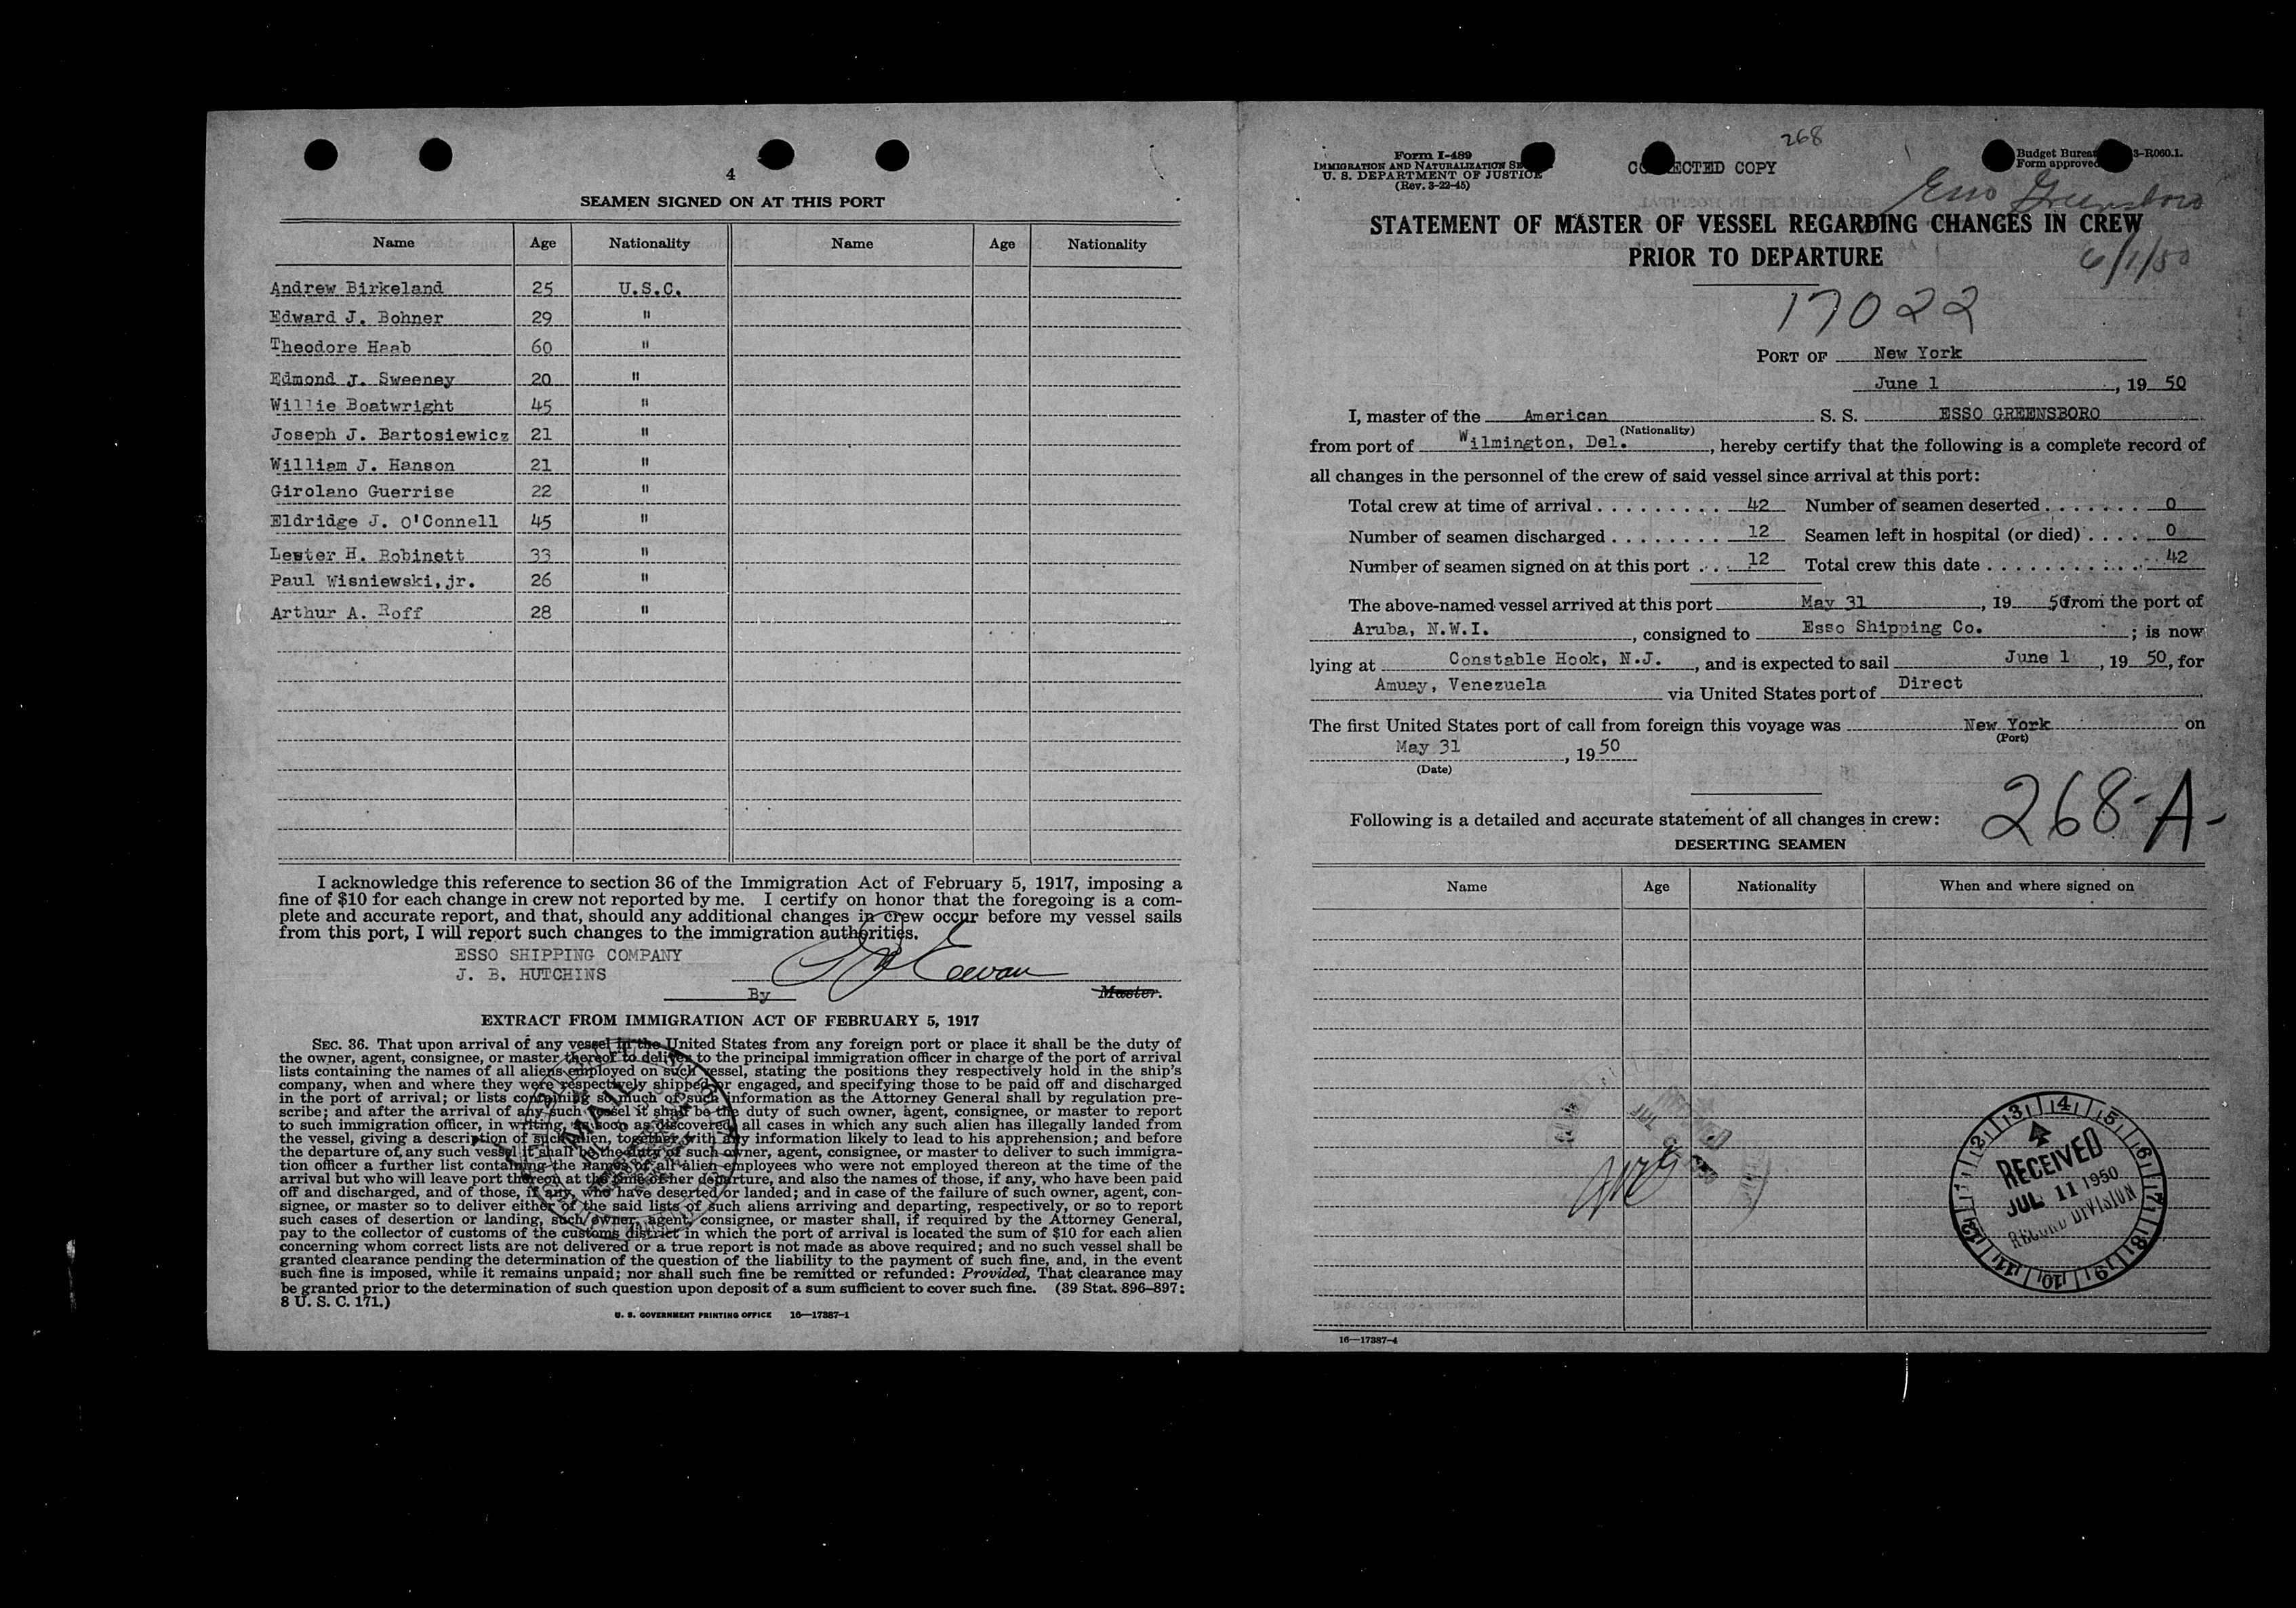 4
SEAMEN SIGNED ON AT THIS PORT
Name Age Nationality Name Age Nationality
Andrew Birkeland 25 U.S.C.
Edward J. Bohner 29 "
Theodore Haab 60 "
Edmond J. Sweeney 20 "
Willie Boatwright 45 "
Joseph J. Bartosiewicz 21 "
William J. Hanson 21 "
Girolano Guerrise 22 "
Eldridge J. O'Connell 45 "
Lester H. Robinett 33 "
Paul Wisniewski, jr. 26 "
Arthur A. Roff 28 "
I acknowledge this reference to section 36 of the Immigration Act of February 5, 1917, imposing a
fine of $10 for each change in crew not reported by me. I certify on honor that the foregoing is a com-
plete and accurate report, and that, should any additional changes in crew occur before my vessel sails
from this port, I will report such changes to the immigration authorities.
ESSO SHIPPING COMPANY
J. B. HUTCHINS
By Master.
EXTRACT FROM IMMIGRATION ACT OF FEBRUARY 5, 1917
SEC. 36. That upon arrival of any vessel in the United States from any foreign port or place it shall be the duty of
the owner, agent, consignee, or master thereof to deliver to the principal immigration officer in charge of the port of arrival
lists containing the names of all aliens employed on such vessel, stating the positions they respectively hold in the ship's
company, when and where they were respectively shipped or engaged, and specifying those to be paid off and discharged
in the port of arrival; or lists containing so much of such information as the Attorney General shall by regulation pre-
scribe; and after the arrival of any such vessel it shall be the duty of such owner, agent, consignee, or master to report
to such immigration officer, in writing, as soon as discovered, all cases in which any such alien has illegally landed from
the vessel, giving a description of such alien, together with any information likely to lead to his apprehension; and before
the departure of any such vessel it shall be the duty of such owner, agent, consignee, or master to deliver to such immigra-
tion officer a further list containing the names of all alien employees who were not employed thereon at the time of the
arrival but who will leave port thereon at the time of her departure, and also the names of those, if any, who have been paid
off and discharged, and of those, if any, who have deserted or landed; and in case of the failure of such owner, agent, con-
signee, or master so to deliver either of the said lists of such aliens arriving and departing, respectively, or so to report
such cases of desertion or landing, such owner, agent, consignee, or master shall, if required by the Attorney General,
pay to the collector of customs of the customs district in which the port of arrival is located the sum of $10 for each alien
concerning whom correct lists are not delivered or a true report is not made as above required; and no such vessel shall be
granted clearance pending the determination of the question of the liability to the payment of such fine, and, in the event
such fine is imposed, while it remains unpaid; nor shall such fine be remitted or refunded: Provided, That clearance may
be granted prior to the determination of such question upon deposit of a sum sufficient to cover such fine. (39 Stat. 896–897;
8 U. S. C. 171.)
U. S. GOVERNMENT PRINTING OFFICE 16—17387-1
268
Form I-489
IMMIGRATION AND NATURALIZATION
U. S. DEPARTMENT OF JUSTICE
(Rev. 3-22-45)
COPY
Budget
Form approved
3-R060.1.
Esso Greensboro
STATEMENT OF MASTER OF VESSEL REGARDING CHANGES IN CREW
PRIOR TO DEPARTURE
6/1/50
17022
PORT OF New York
June 1, 19 50
I, master of the American S. S. ESSO GREENSBORO
(Nationality)
from port of Wilmington, Del., hereby certify that the following is a complete record of
all changes in the personnel of the crew of said vessel since arrival at this port:
Total crew at time of arrival . . . . . . . . . 42 Number of seamen deserted . . . . . . . 0
Number of seamen discharged . . . . . . . . 12 Seamen left in hospital (or died) . . . . 0
Number of seamen signed on at this port . . . 12 Total crew this date . . . . . . . . . . . . 42
The above-named vessel arrived at this port May 31, 19 50 from the port of
Aruba, N.W.I., consigned to Esso Shipping Co.; is now
lying at Constable Hook, N.J., and is expected to sail June 1, 19 50, for
Amuay, Venezuela via United States port of Direct
The first United States port of call from foreign this voyage was New York on
(Port)
May 31, 19 50
(Date)
268-A-
Following is a detailed and accurate statement of all changes in crew:
DESERTING SEAMEN
Name Age Nationality When and where signed on
RECEIVED
JUL 11 1950
RECORD DIVISION
1 2 3 4 5 6 7 8 9 10 11 12
16—17387-4